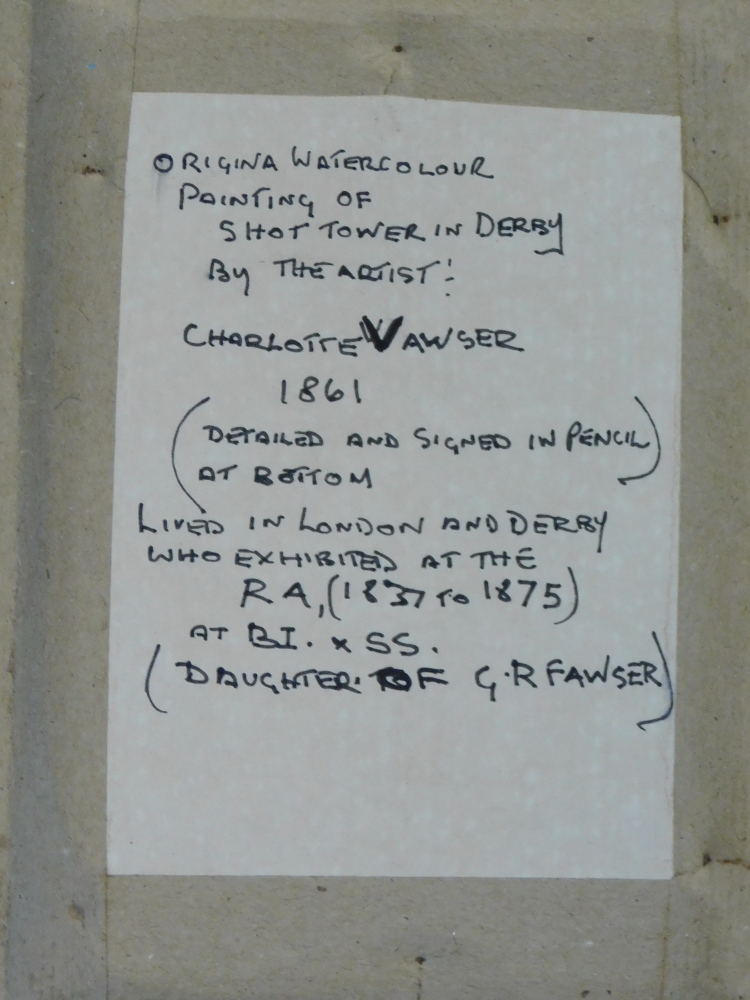 ORIGINA WATERCOLOUR
PAINTING OF
SHOT TOWER IN DERBY
By THE ARTIST!
CHARLOTTE VAWSER
1861
(DETAILED AND SIGNED IN PENCIL)
AT BOTTOM
LIVED IN LONDON AND DERBY
WHO EXHIBITED AT THE
RA, (1837 TO 1875)
AT BI. & SS.
(DAUGHTER OF G.R FAWSER)